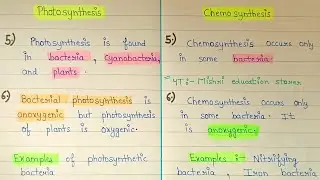 Photosynthesis
5) Photosynthesis is found
in bacteria, cyanobacteria,
and plants.
6) Bacterial photosynthesis is
anoxygenic but photosynthesis
of plants is oxygenic.
Examples of photosynthetic
bacteria
Chemosynthesis
5) Chemosynthesis occurs only
in some bacteria.
YT:- Mishri education stories
6) Chemosynthesis occurs only
in some bacteria. It
is anoxygenic.
Examples :- Nitrifying
bacteria, Iron bacteria